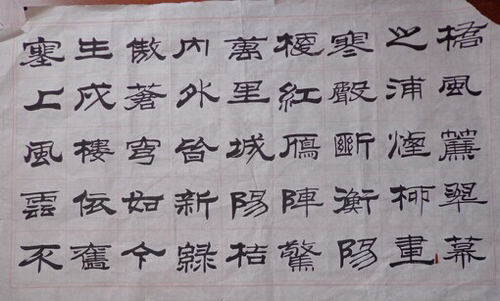 塞上風雲不
生戍樓依舊
傲蒼穹如今
内外皆新綠
萬里城陽桔
梗紅雁陣驚
寒聲斷衡陽
之浦煙柳畫
橋風簾翠幕